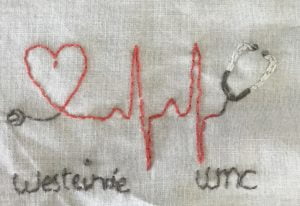 Westeinde WMC